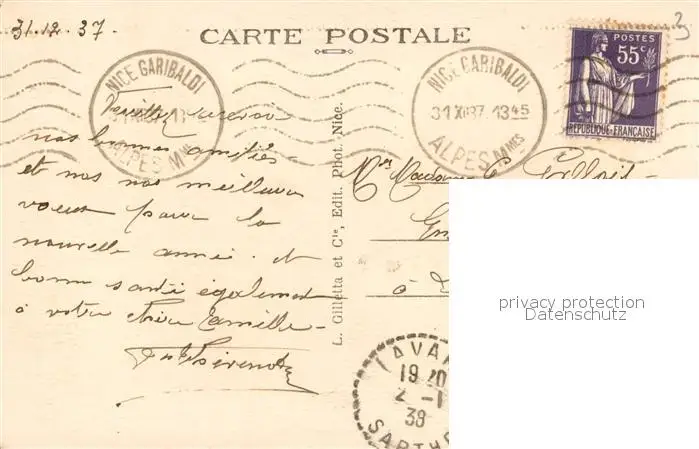 31.12.37.
CARTE POSTALE
3
POSTES
55c
REPUBLIQUE FRANÇAISE
NICE GARIBALDI
ALPES Mmes
NICE GARIBALDI
31 XII 37 1345
ALPES Mmes
Veuillez recevoir
nos bonnes amitiés
et nos meilleurs
voeux pour la
nouvelle année et
bonne santé également
à votre chère famille
L. Gilletta et Cie, Edit. Phot. Nice.
à
AVA
19 20
2 -1
38
SARTH
privacy protection
Datenschutz